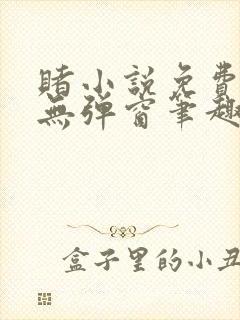 賭小説免費
無弹窗筆趣
盒子里的小丑